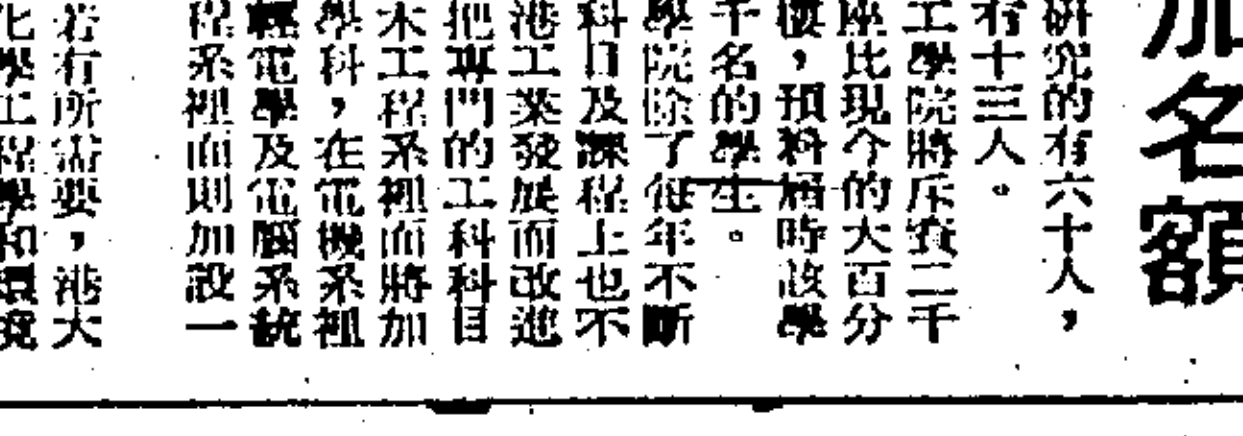 加名額
研究的有六十人，
有十三人。
工學院將斥資二千
座比現今的大百分
樓，預料屆時該學
千名的學生。
學院除了每年不斷
科目及課程上也不
港工業發展而改進
把專門的工科科目
木工程系裡面將加
學科，在電機系裡
輕電學及電腦系統
程系裡面則加設一
若有所需要，港大
化學工程學和環境